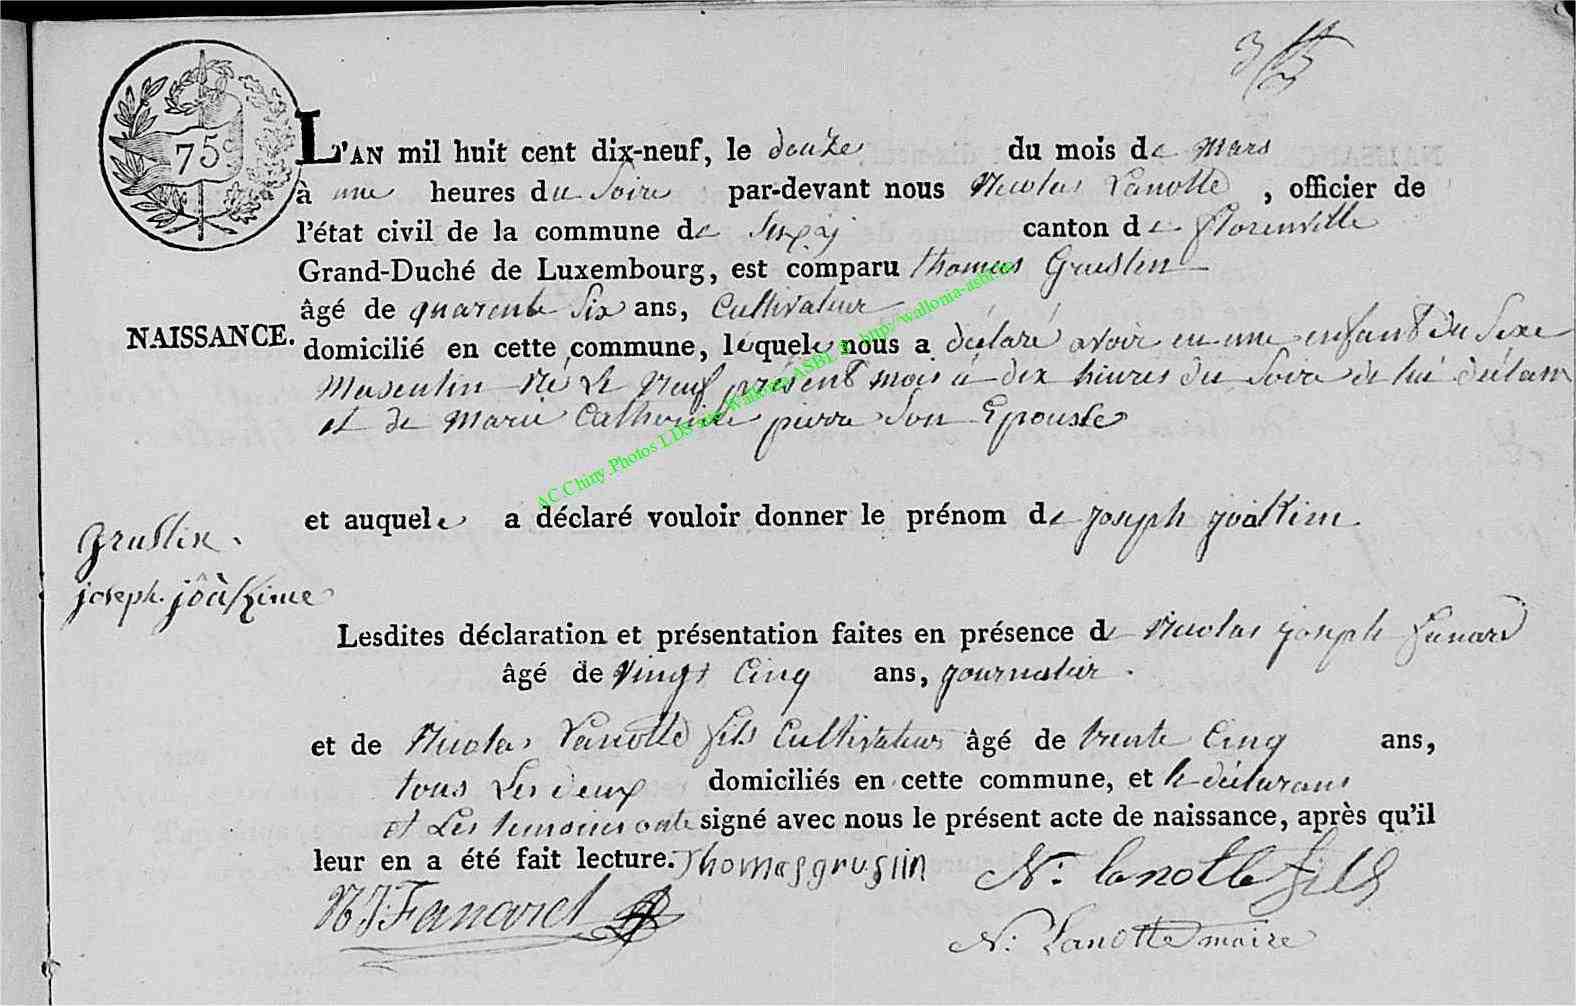 75
L'AN mil huit cent dix-neuf, le douze du mois de mars
à une heures du Soire par-devant nous Nicolas Lanotte, officier de
l'état civil de la commune de canton de florenville
Grand-Duché de Luxembourg, est comparu thomas Gruslin
âgé de quarente Six ans, Cultivateur
NAISSANCE.
domicilié en cette commune, lequele nous a déclaré avoir eu une enfant du Sexe
Masculin Né Le Neuf présent mois à dix heures du Soire de lui déclarant
et de marie Catherine pierre Son Epouse
AC Chiny.Photos LDS Wallonia ASBL http//wallonia-asbl.be
et auquele a déclaré vouloir donner le prénom de joseph joàkim
Gruslin.
joseph. joàkime
Lesdites déclaration et présentation faites en présence de Nicolas joseph fanard
âgé de vingt Cinq ans, journalier.
et de Nicolas Lanotte fils Cultivateur âgé de trente Cinq ans,
tous Les deux domiciliés en cette commune, et le déclarant
et Les temoins onte signé avec nous le présent acte de naissance, après qu'il
leur en a été fait lecture. Thomas gruslin N: lanotte fils
N J Fanard
N: Lanotte maire